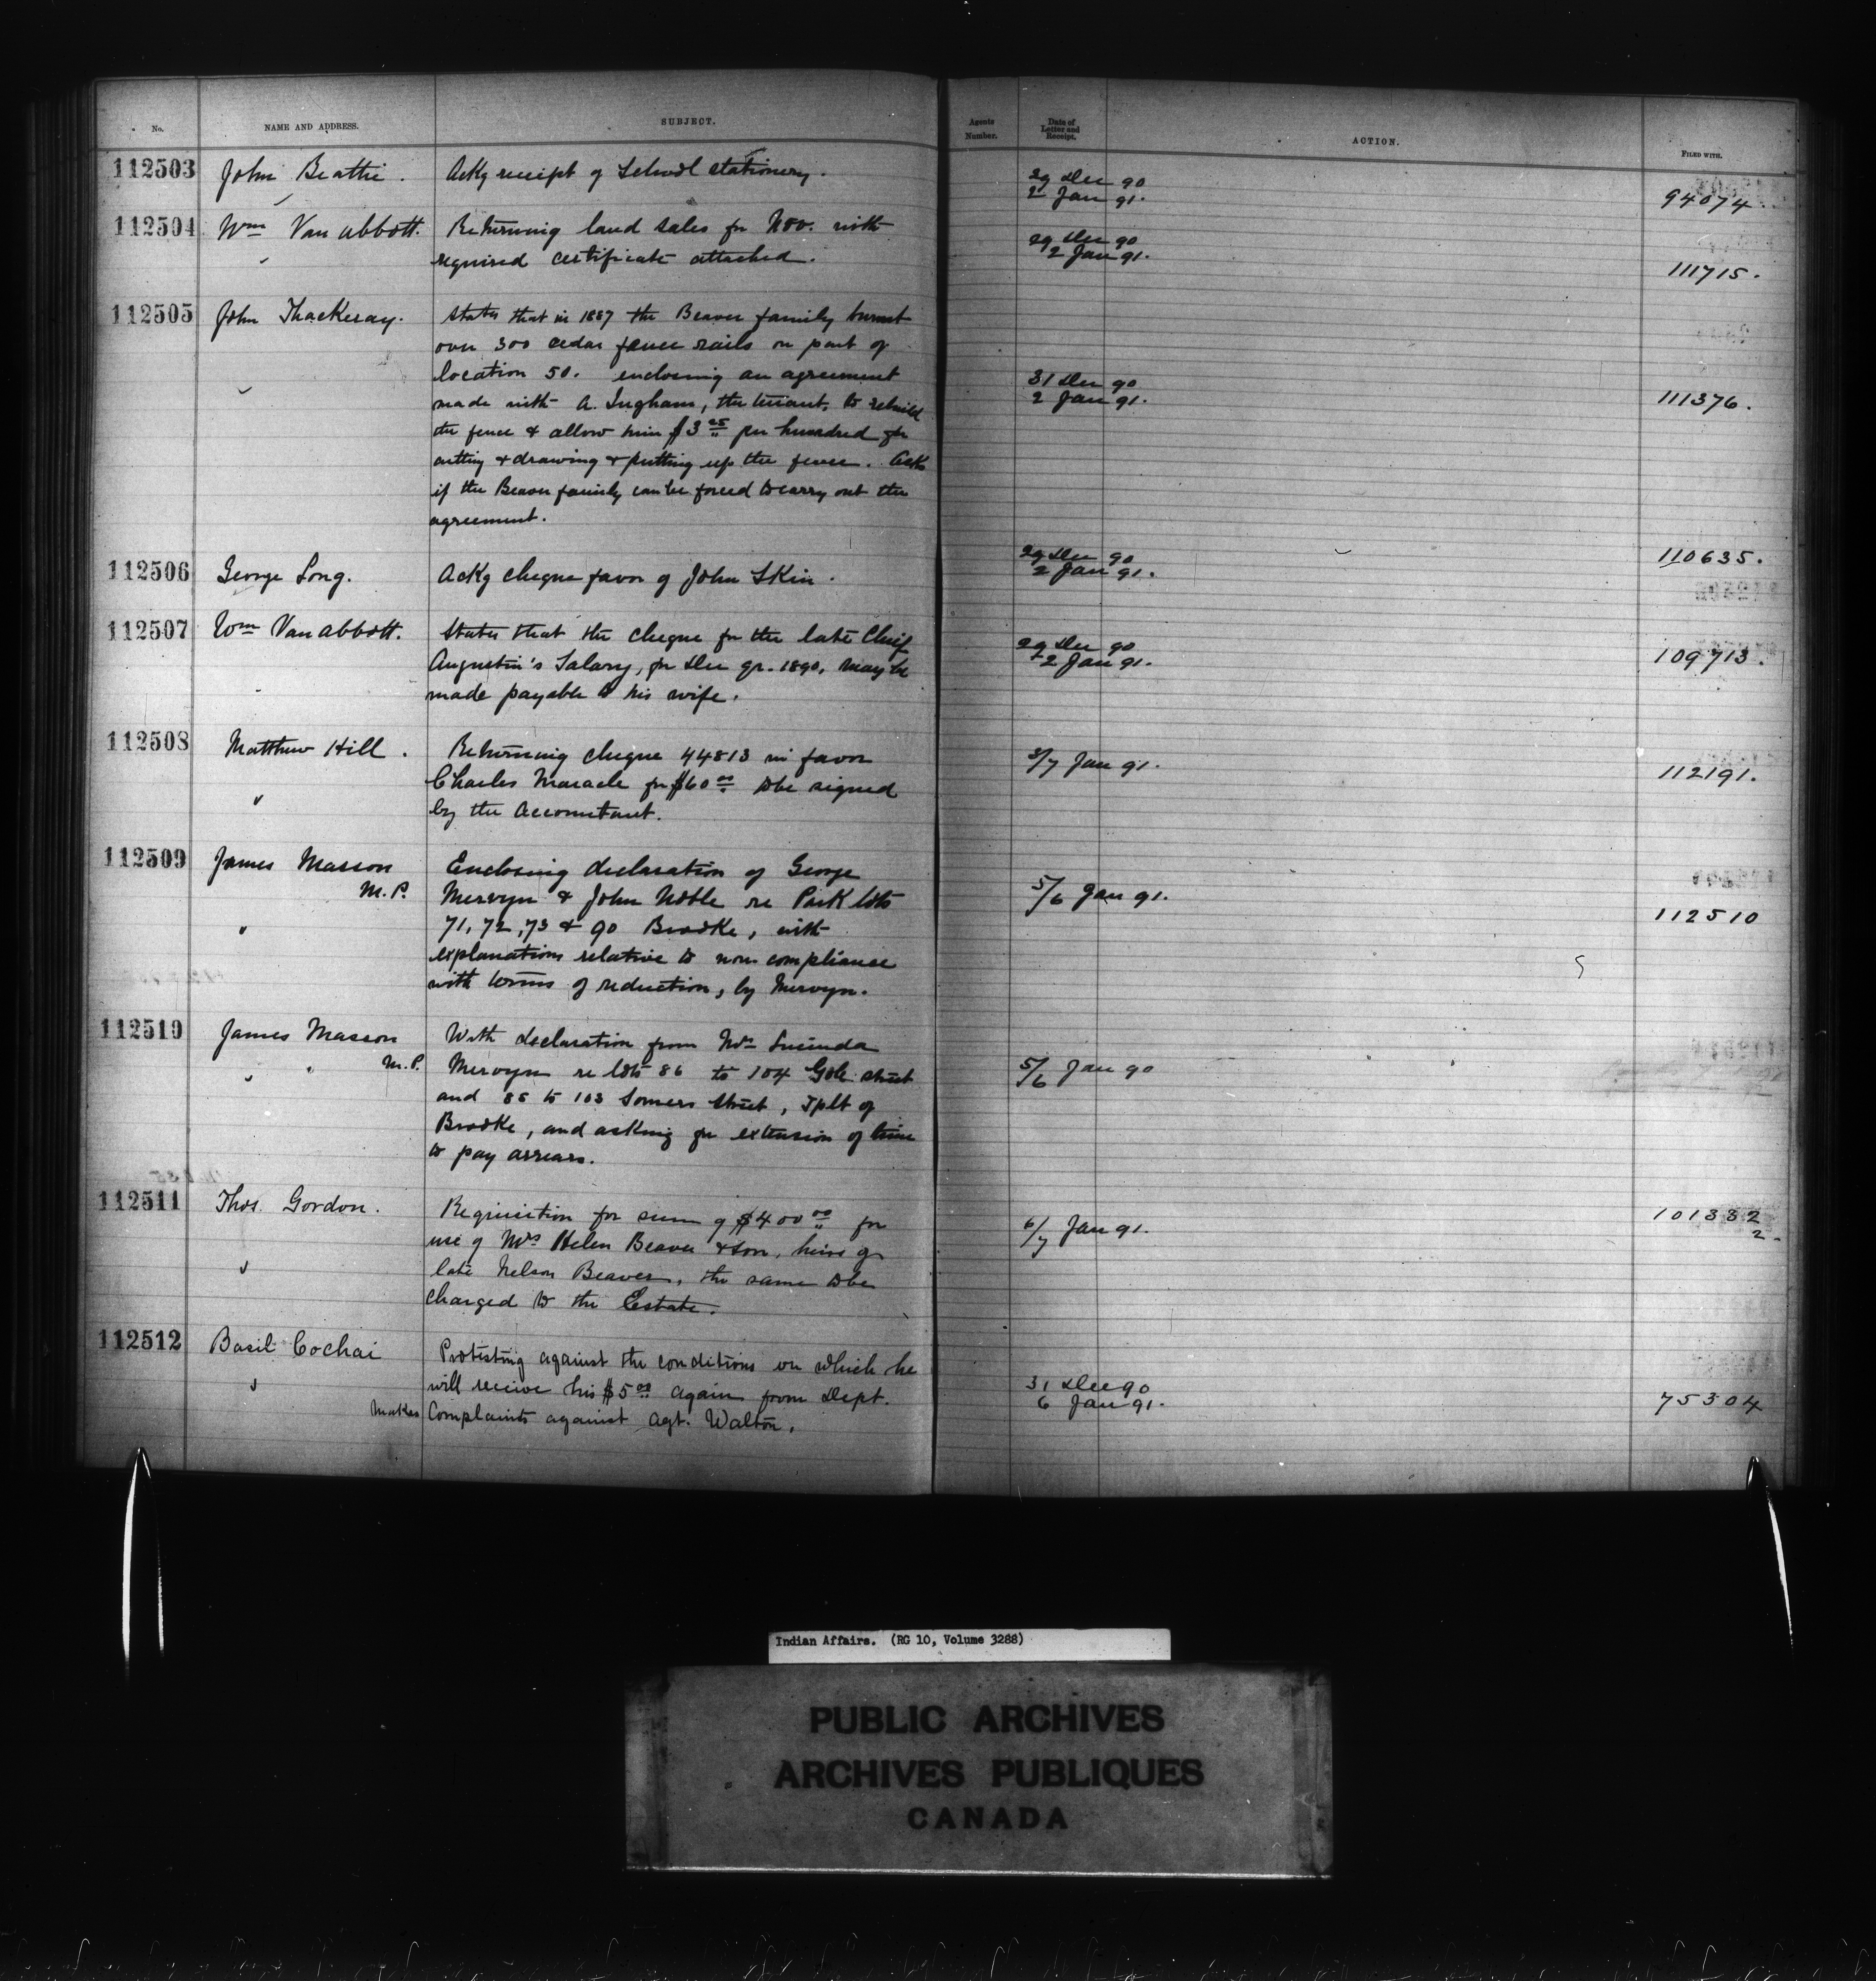 No. NAME AND ADDRESS. SUBJECT. Agents Number. Date of Letter and Receipt. ACTION. FILED WITH.
112503 John Beattie. Ackg receipt of School stationery. 29 Dec 90
2 Jan 91. 94074.
112504 Wm Van abbott. Returning land sales for Nov. with 29 Dec 90
required certificate attached. 2 Jan 91. 111715.
112505 John Thackeray. States that in 1887 the Beaver family burnt
over 300 cedar fence rails on part of
location 50. enclosing an agreement 31 Dec 90
made with A. Ingham, the tenant, to rebuild 2 Jan 91. 111376.
the fence & allow him $3 25 per hundred for
cutting & drawing & putting up the fence. Asks
if the Beaver family can be forced to carry out the
agreement.
112506 George Long. Ackg cheque favor of John Skin. 29 Dec 90
2 Jan 91. 110635.
112507 Wm Van Abbott. States that the cheque for the late Chief
Augustin's Salary, for Dec qr. 1890, may be 29 Dec 90
made payable to his wife. 2 Jan 91. 109713.
112508 Matthew Hill. Returning cheque 44813 in favor 3/7 Jan 91. 112191.
Charles Maracle for $60 00 to be signed
by the Accountant.
112509 James Masson Enclosing declaration of George
M.P. Mervyn & John Noble re Park lots 5/6 Jan 91. 112510
71, 72, 73 & 90 Brooke, with
explanations relative to non compliance
with terms of reduction, by Mervyn.
112510 James Masson With declaration from Mrs Lucinda
M.P. Mervyn re lots 86 to 104 street 5/6 Jan 90
and 85 to 103 Somers Street, Tplt of
Brooke, and asking for extension of time
to pay arrears.
112511 Thos. Gordon. Requisition for sum of $400 00 for 6/7 Jan 91. 101332
2.
use of Mrs Helen Beaver & son, heirs of
late Nelson Beaver, the same to be
charged to the Estate.
112512 Basil Cochai Protesting against the conditions on which he
will receive his $5 00 again from Dept. 31 Dec 90
Makes Complaints against Agt. Walton. 6 Jan 91. 75304
Indian Affairs. (RG 10, Volume 3288)
PUBLIC ARCHIVES
ARCHIVES PUBLIQUES
CANADA